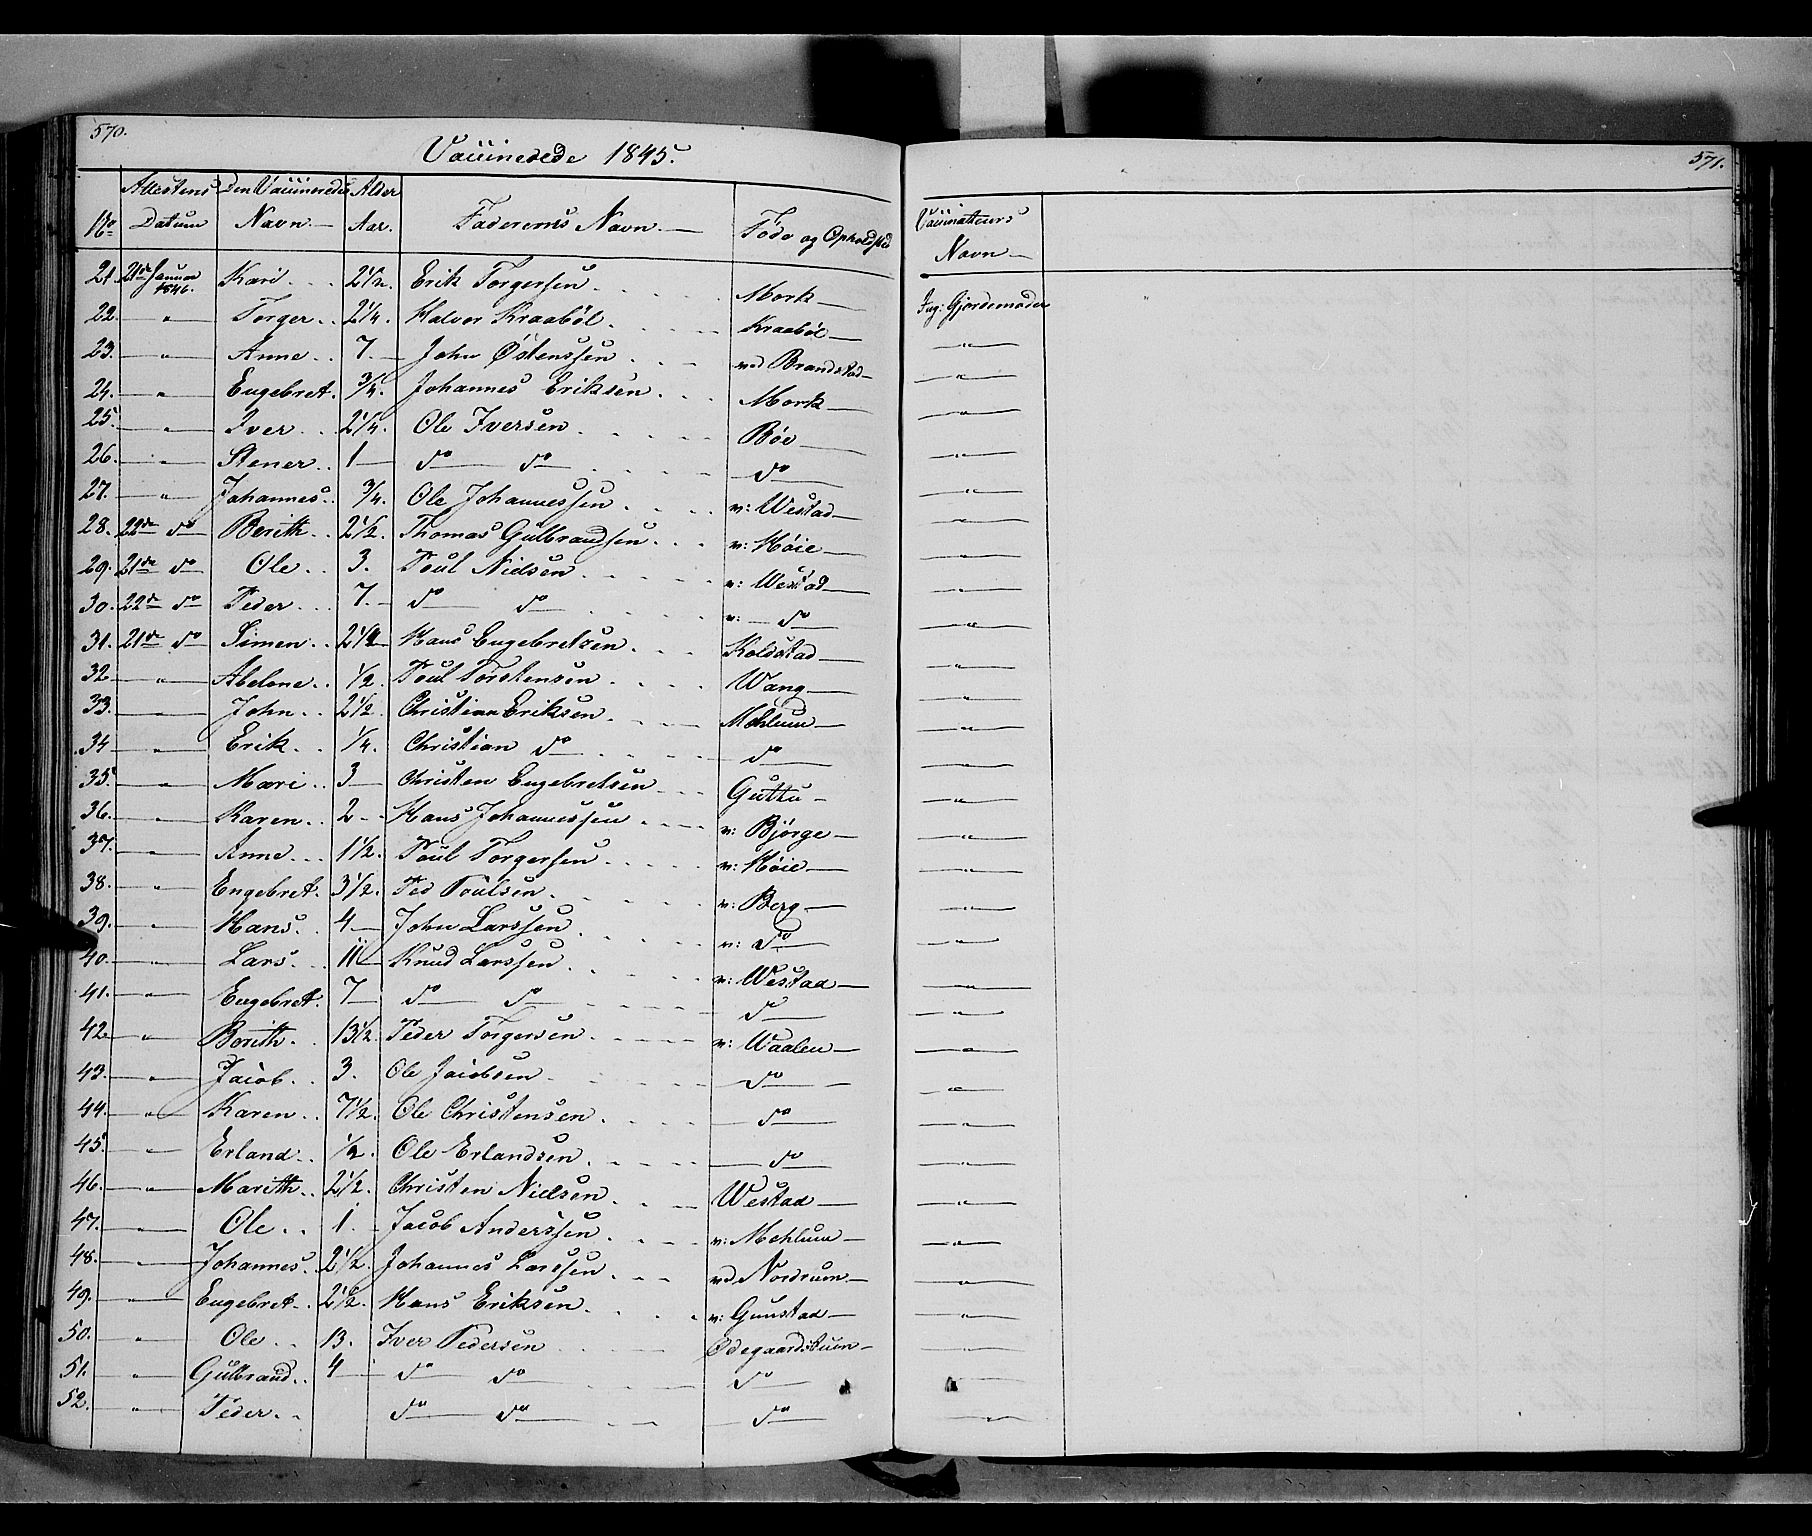 570.
Vaccinerede 1845.
571.
No Attestens Datum Den Vaccineredes Navn Alder Aar. Faderens Navn Føde og Opholdsted Vaccinateurs Navn
21. 21de Januar 1846. Kari 2 1/2 Erik Torgersen Mork Gjordemoder
22. " Torger 2 1/4. Halvor Kraabøl Kraabøl "
23. " Anne 7. John Østenssen ved Brandstad "
24. " Engebret 3/4. Johannes Eriksen Mork "
25. " Iver 2 1/4. Ole Iversen Bøe "
26. " Stener 1 do do do "
27. " Johannes 3/4. Ole Johannessen v: Westad "
28. 22de do Berith 2 1/2. Thomas Gulbrandsen v: Høie "
29. 21de do Ole 3. Poul Nielsen v: Westad "
30. 22de do Peder 7. do do v: do "
31. 21de do Simen Hans Engebretsen Koldstad "
32 " Abelone 1/2. Poul Torstensen Wang "
33. " John 2 1/2. Christian Eriksen Mehlum "
34 " Erik 1/4. Christian do do "
35. " Mari 3 Christen Engebretsen Guttu "
36. " Karen 2 Hans Johannessen v: Bjørge "
37. " Anne 1 1/2. Poul Torgersen v: Høie "
38. " Engebret. 3 1/2. Ped Poulsen v: Berg "
39. " Hans 4 John Larssen v: do "
40. " Lars 11 Knud Larssen v: Westad "
41. " Engebret. 7 do do do "
42. " Berith 13 1/2. Peder Torgersen v: Waalen "
43. " Jacob 3. Ole Jacobsen do "
44. " Karen 7 1/2. Ole Christensen do "
45. " Erland 1/2. Ole Erlandsen do "
46. " Marith 2 1/2. Christen Nielsen Westad "
47. " Ole 1. Jacob Anderssen v: Mehlum "
48. " Johannes 2 1/2. Johannes Larssen vd Nordrum "
49. " Engebret 2 1/2. Hans Eriksen v: Gunstad "
50. " Ole 13. Iver Pedersen Ødegaardstuen "
51. " Gulbrand 4 do do do "
52. " Peder do do do "